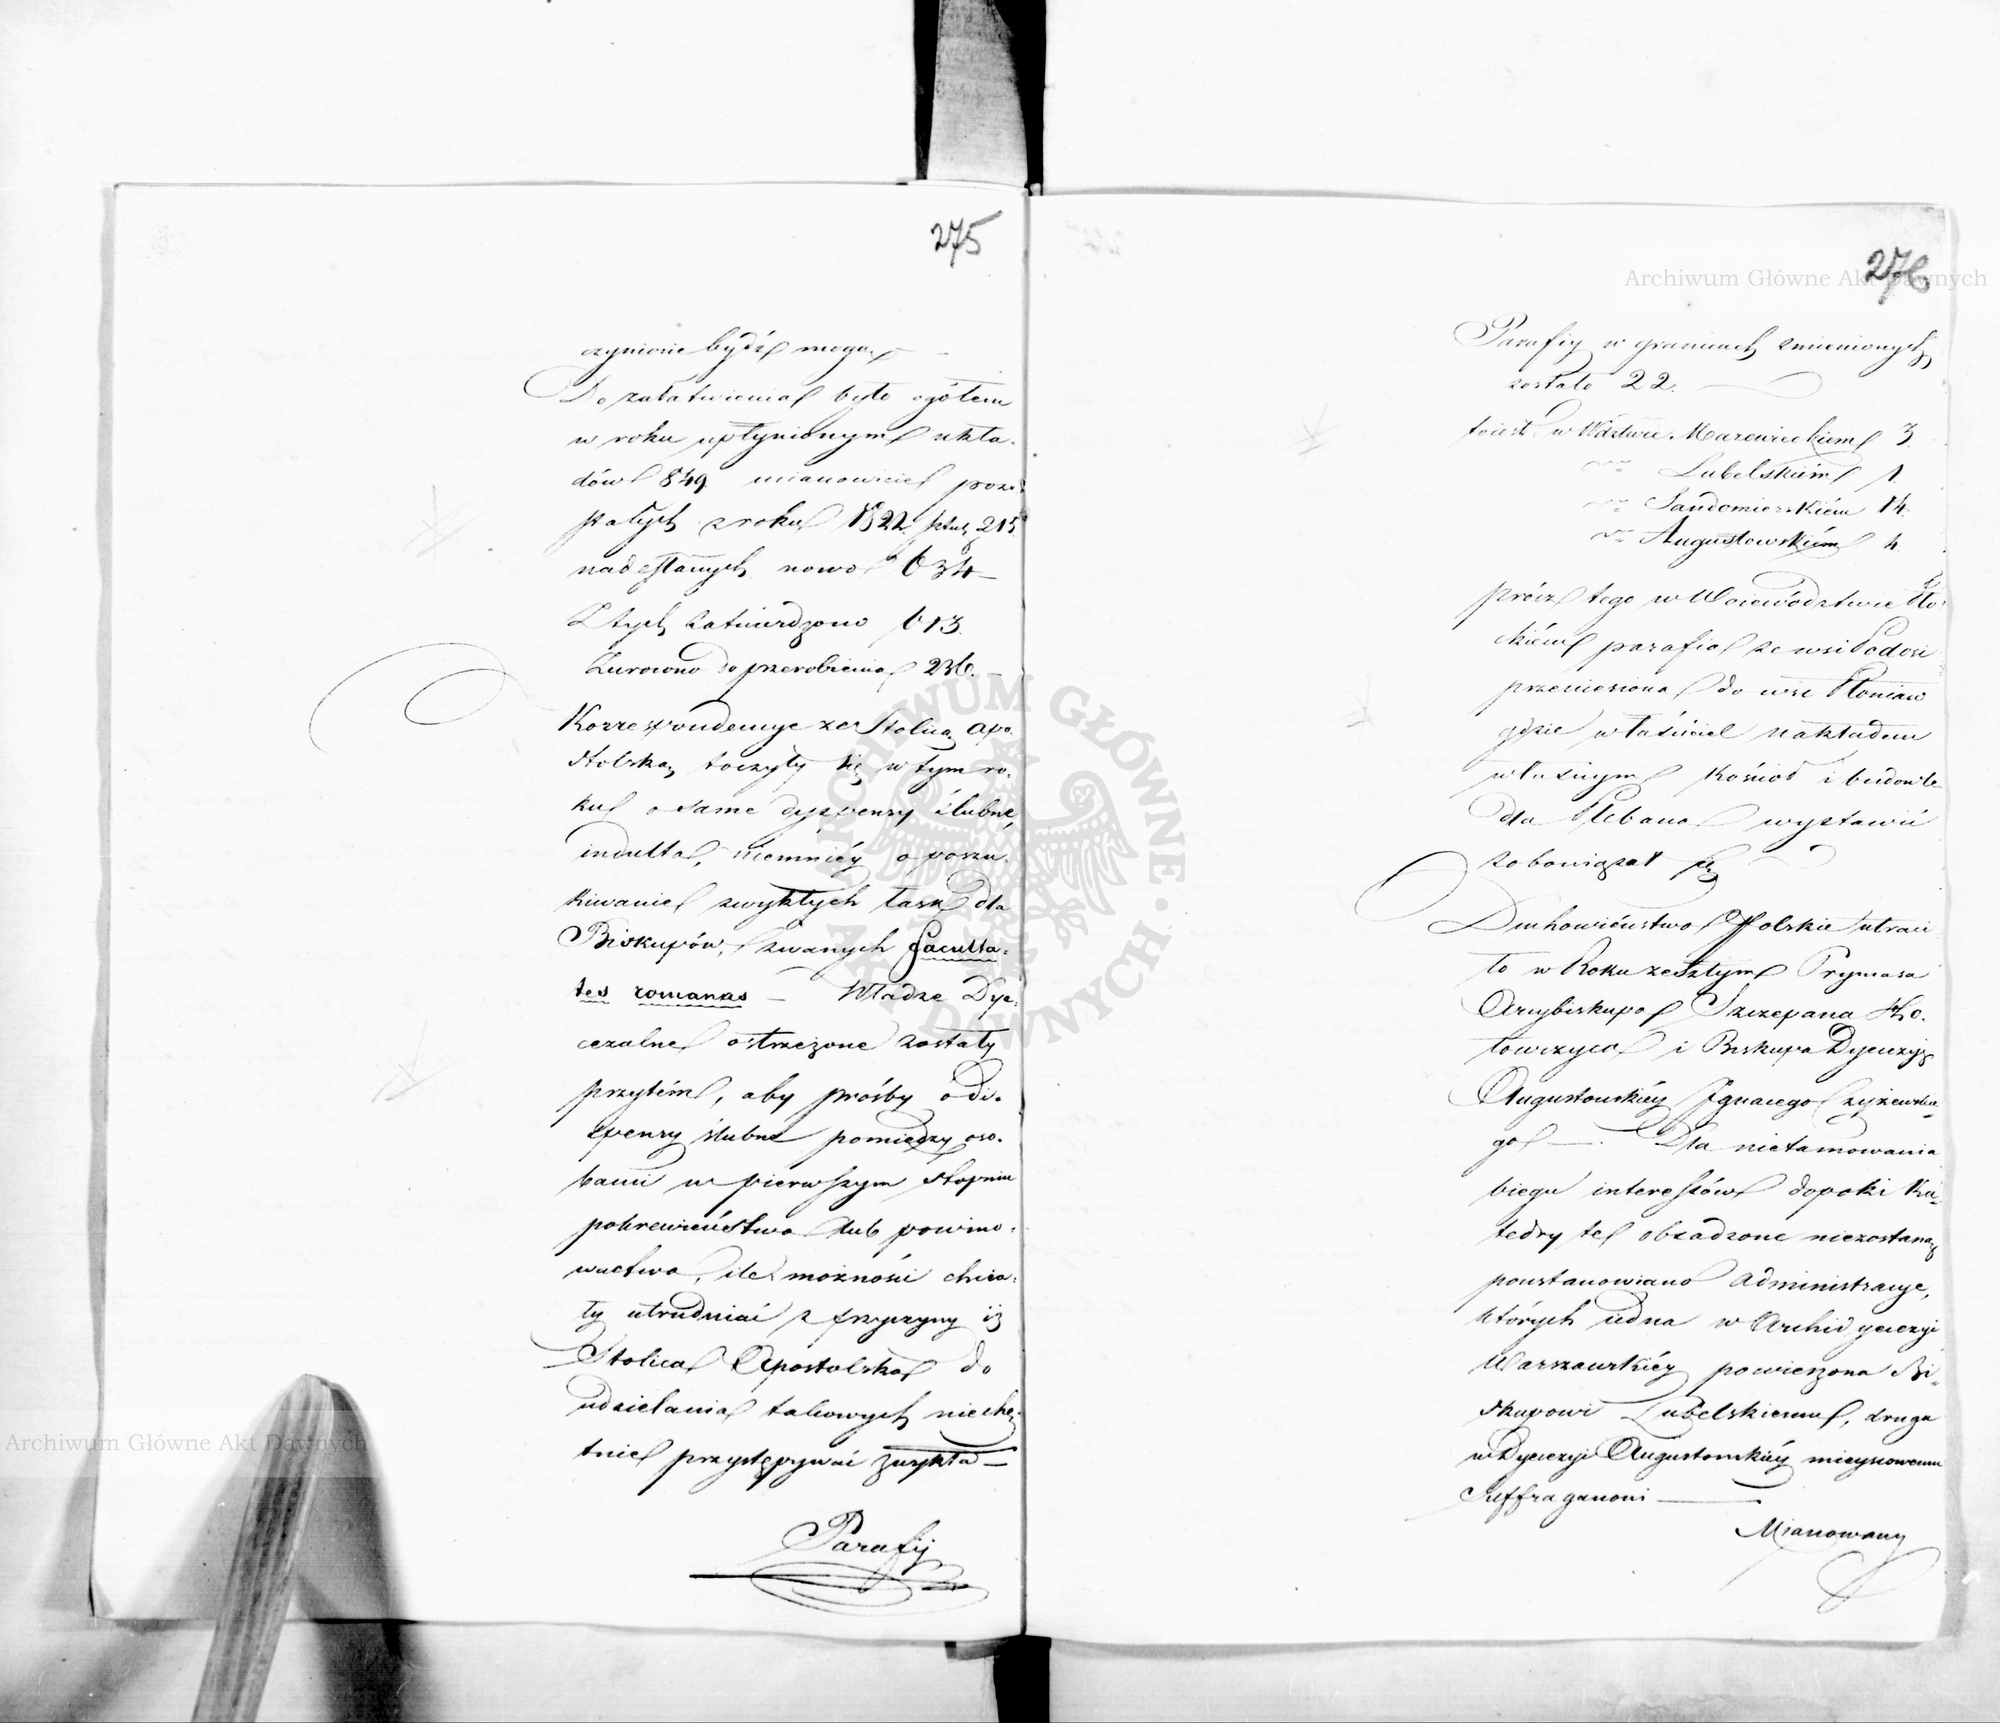 275
czynione bydź mogą. —
Do załatwienia było ogółem
w roku upłynionym ukła-
dów 849 mianowicie pozo-
stałych z roku 1822. sztuk 215.
nadesłanych nowo 634 —
Z tych zatwierdzono 613.
Zwrócono do przerobienia 236. —
Korrespondencye ze Stolicą apo-
stolską toczyły się w tym ro-
ku o same dyspensy ślubne,
indulta, niemniéy o poszu-
kiwanie zwykłych łask dla
Biskupów, zwanych faculta-
tes romanas — Władze Dye-
cezalne ostrzeżone zostały
przytém, aby prośby o dy-
spensy ślubne pomiędzy oso-
bami w pierwszym stopniu
pokrewieństwa lub powino-
wactwa, ile możności chcia-
ły utrudniać z przyczyny iż
Stolica Apostolska do
udzielania takowych niechę-
tnie przystępywać zwykła —
Parafij
276
Archiwum Główne Akt Dawnych
Parafiy w granicach zmienionych
zostało 22.
toiest w Wdztwie Mazowieckiem 3.
Lubelskiém 1
Sandomierskiém 14.
Augustowskiém 4
prócz tego w Woiewództwie Pło-
ckiém parafia ze wsi
przeniesiona do wsi Płoniaw
gdzie właściciel nakładem
własnym kościoł i budowle
dla Plebana wystawić
zobowiązał się
Duchowieństwo Polskie utraci-
ło w Roku zeszłym Prymasa
Arcybiskupa Szczepana Ho-
łowczyca i Biskupa Dyecezyi
Augustowskiéy Ignacego Czyżewskie-
go —. Dla nietamowania
biegu interessów dopóki Ka-
tedry te obsadzone niezostaną
postanowiono Administracye,
których iedna w Archidyecezyi
Warszawskiéy powierzona Bi-
skupowi Lubelskiemu, druga
w Dyecezyi Augustowskiéy mieyscowemu
Suffraganowi —
Mianowany
ARCHIWUM GŁÓWNE AKT DAWNYCH
Archiwum Główne Akt Dawnych